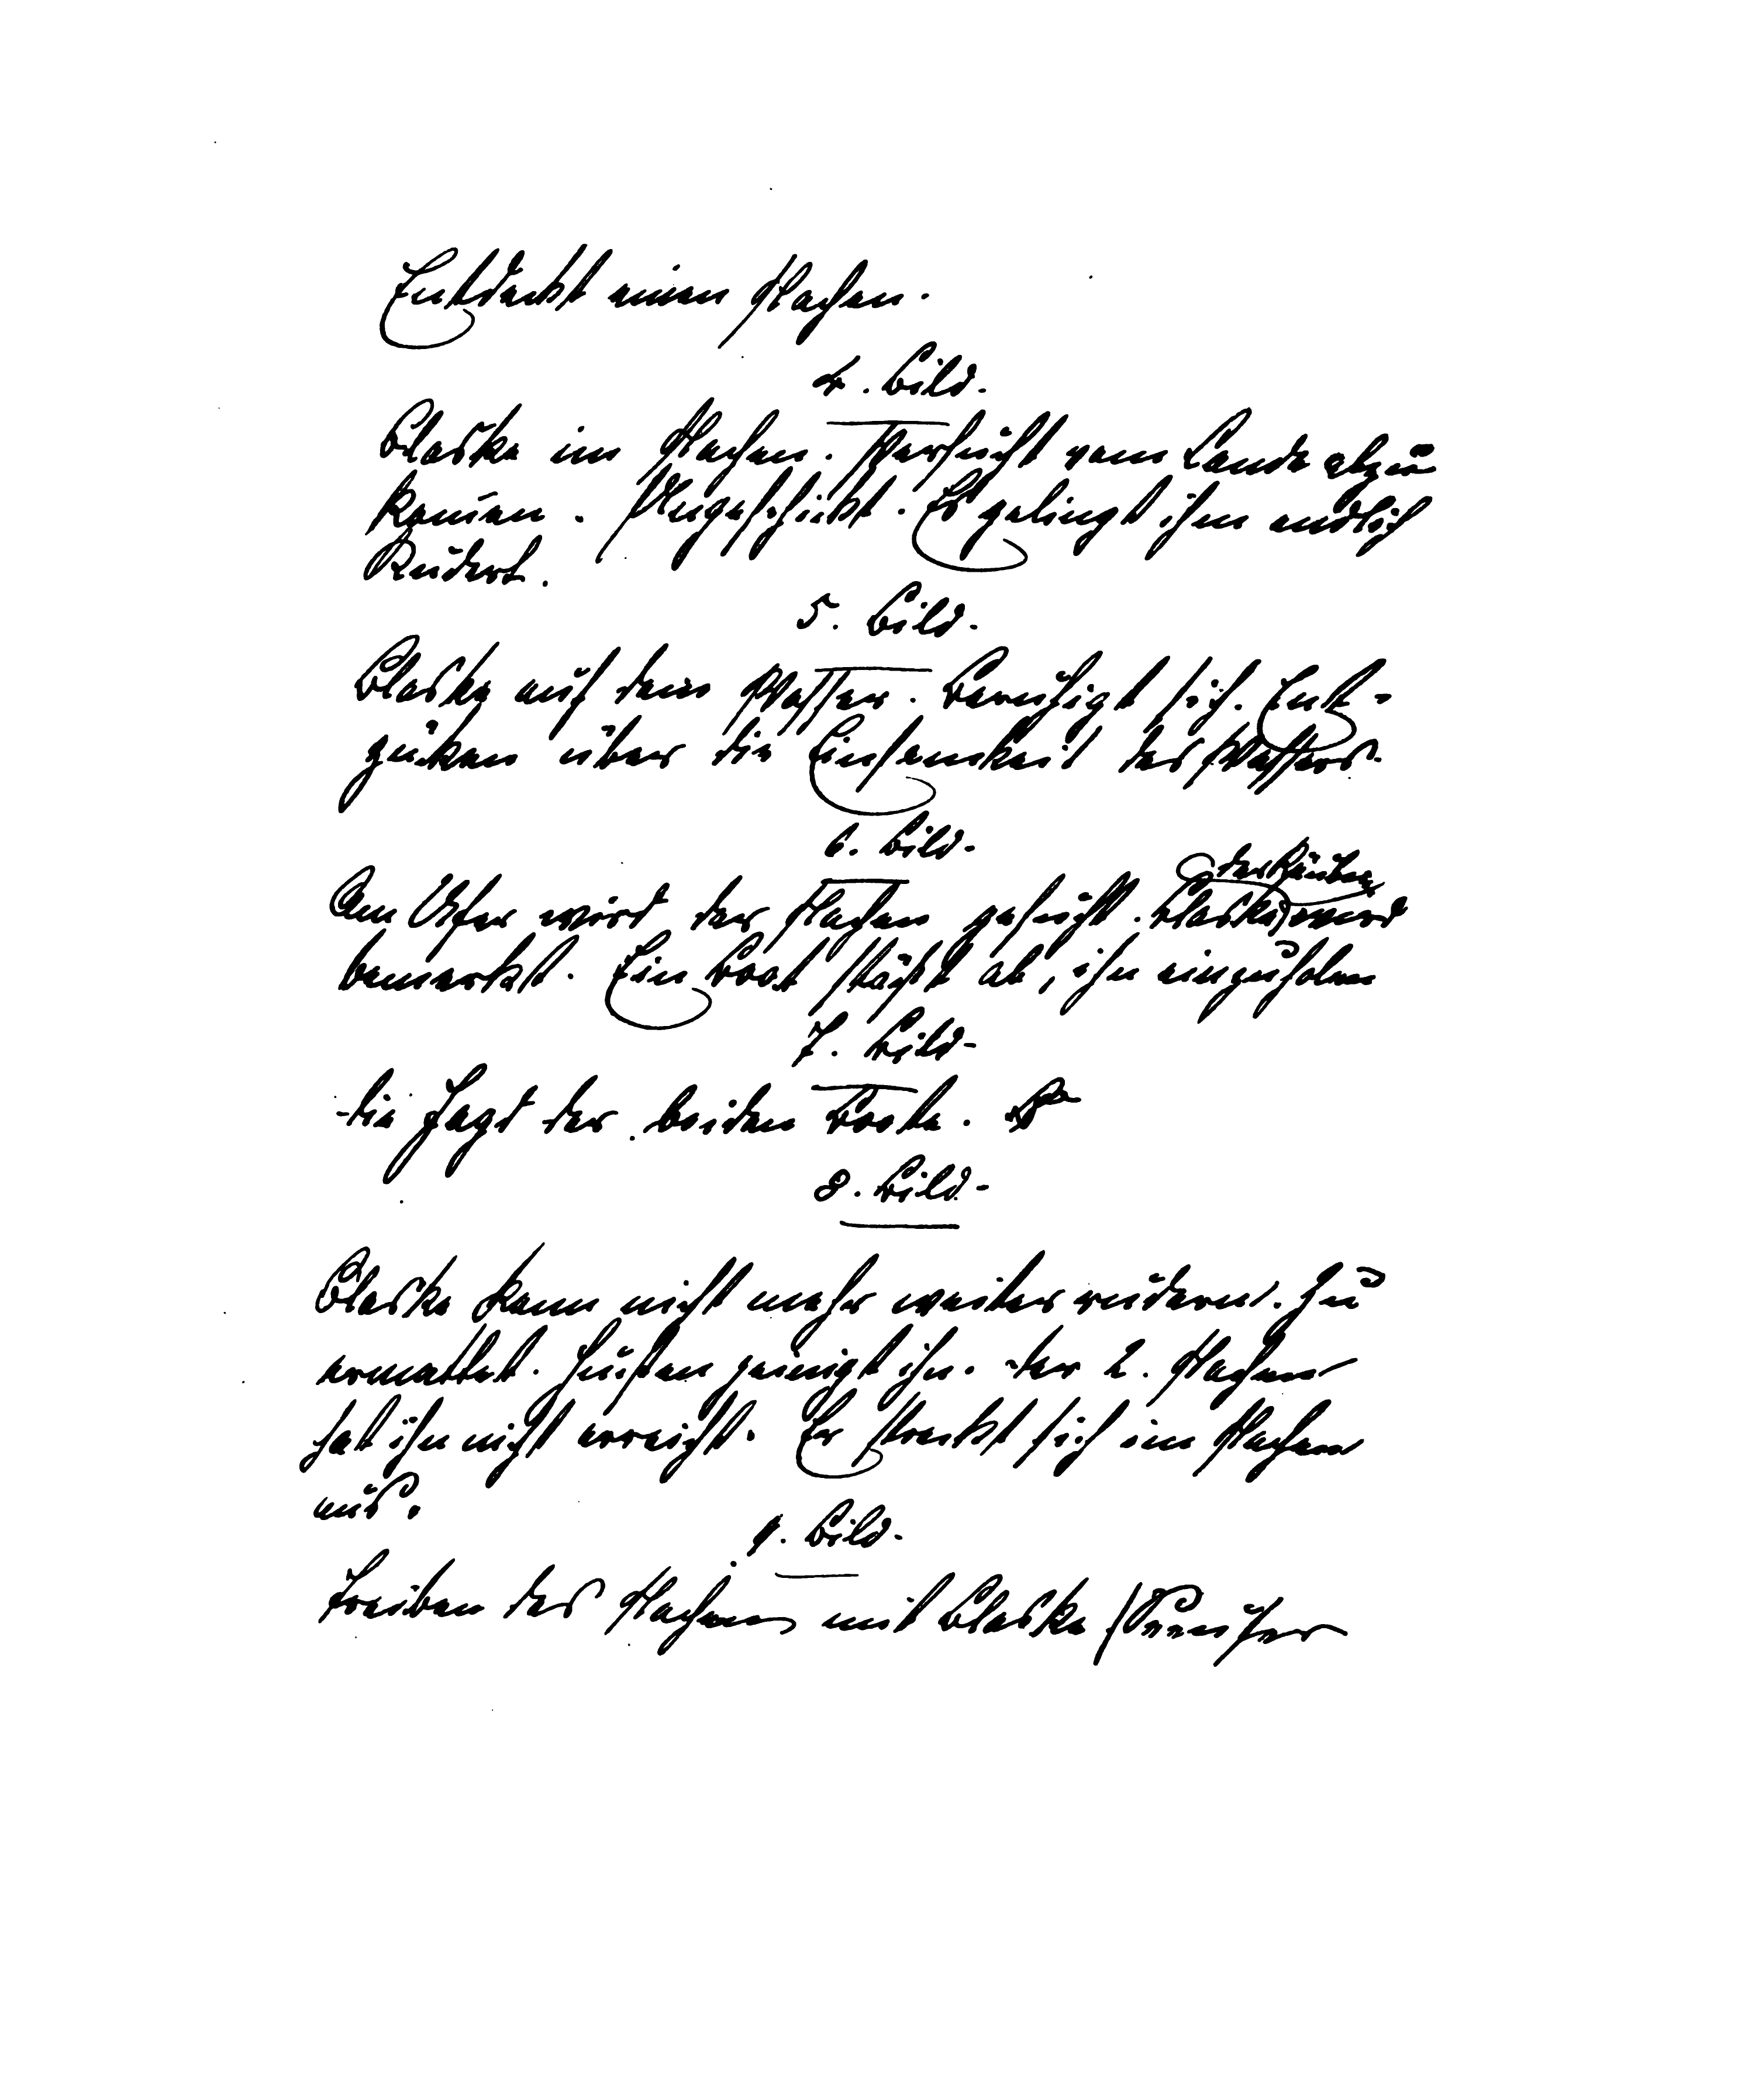 Entdeckt einen Nachen.
4. Bild.
Blaske im Nachen. Versucht vom Lande abzu
kom̄en. Ungeschickt. Es gelingt ihm endlich
Rudert.
5. Bild.
Blaske auf dem Wasser. Beruhigt sich. Ent-
zücken über die Einsamkeit des Wassers.
6. Bild.
der Räuber
Am Ufer wird der Nachen gesucht. Blaske wird
bemerkt. Ein Boot stößt ab, ihn einzuholen
7. Bild.
die Jagd der beiden Boote.
8. Bild.
Blaske kann nicht mehr weiter rudern. Zu
ermattet. Husten peinigt ihn. der 2. Nachen
hat ihn nicht erreicht. Er streckt sich im Nachen
aus.
9. Bild.
Treiben des Nachens mit Blaske